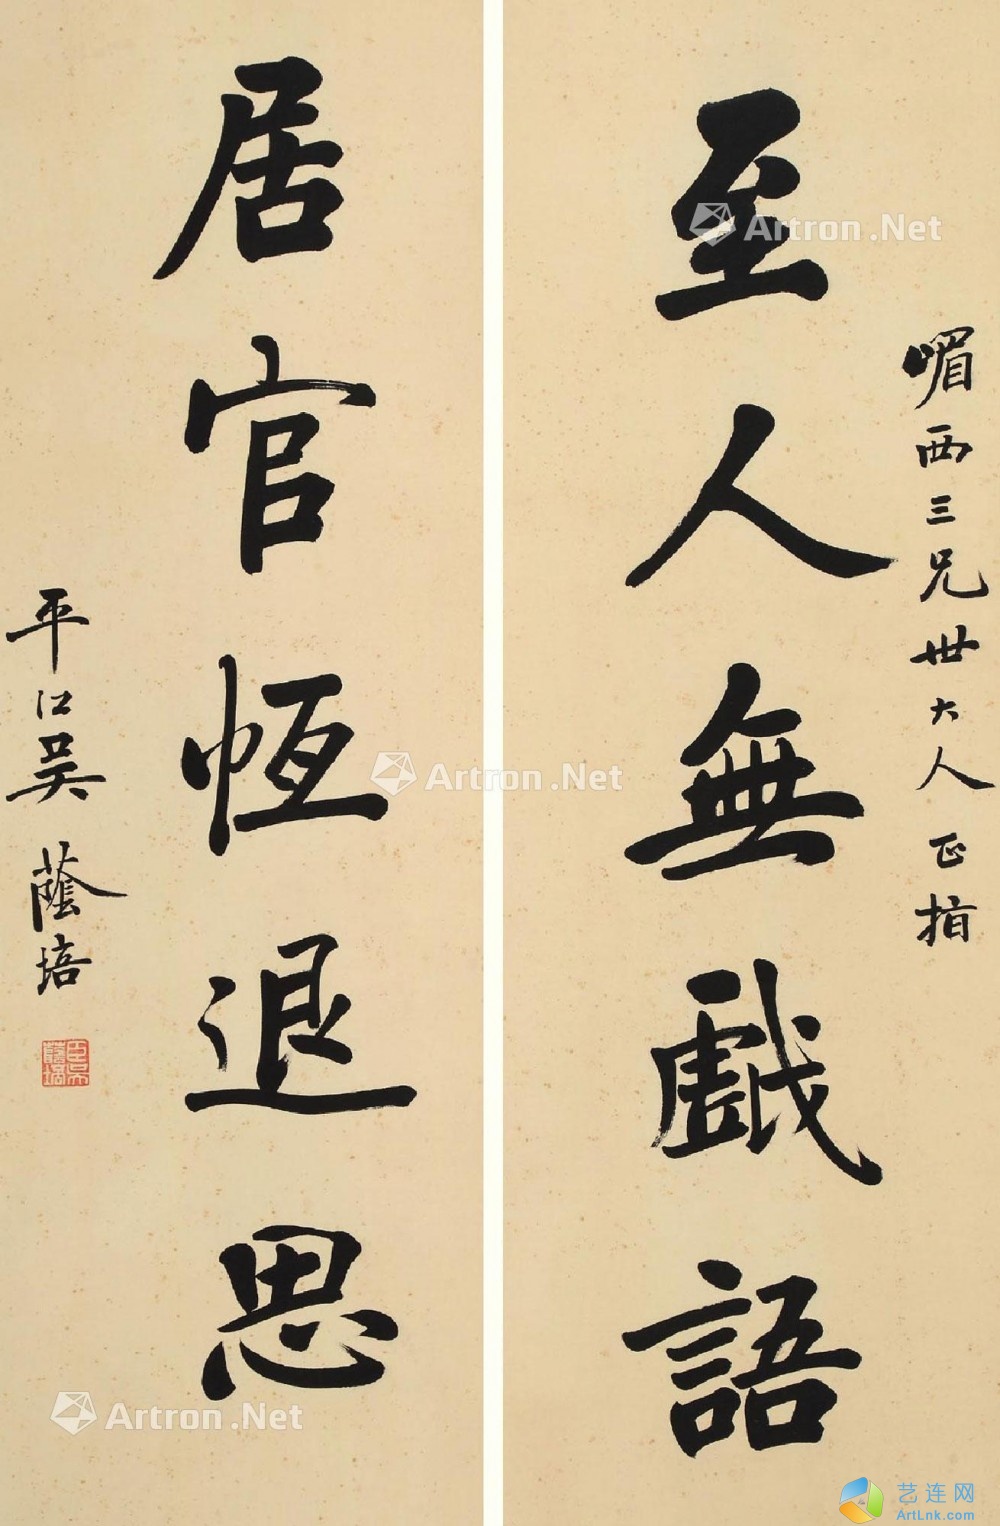 嵋西三兄世大人正指
至人無戲語
居官恆退思
平江吳蔭培
臣吳蔭培
Artron.Net
Artron.Net
Artron.Net
艺连网
ArtLnk.com